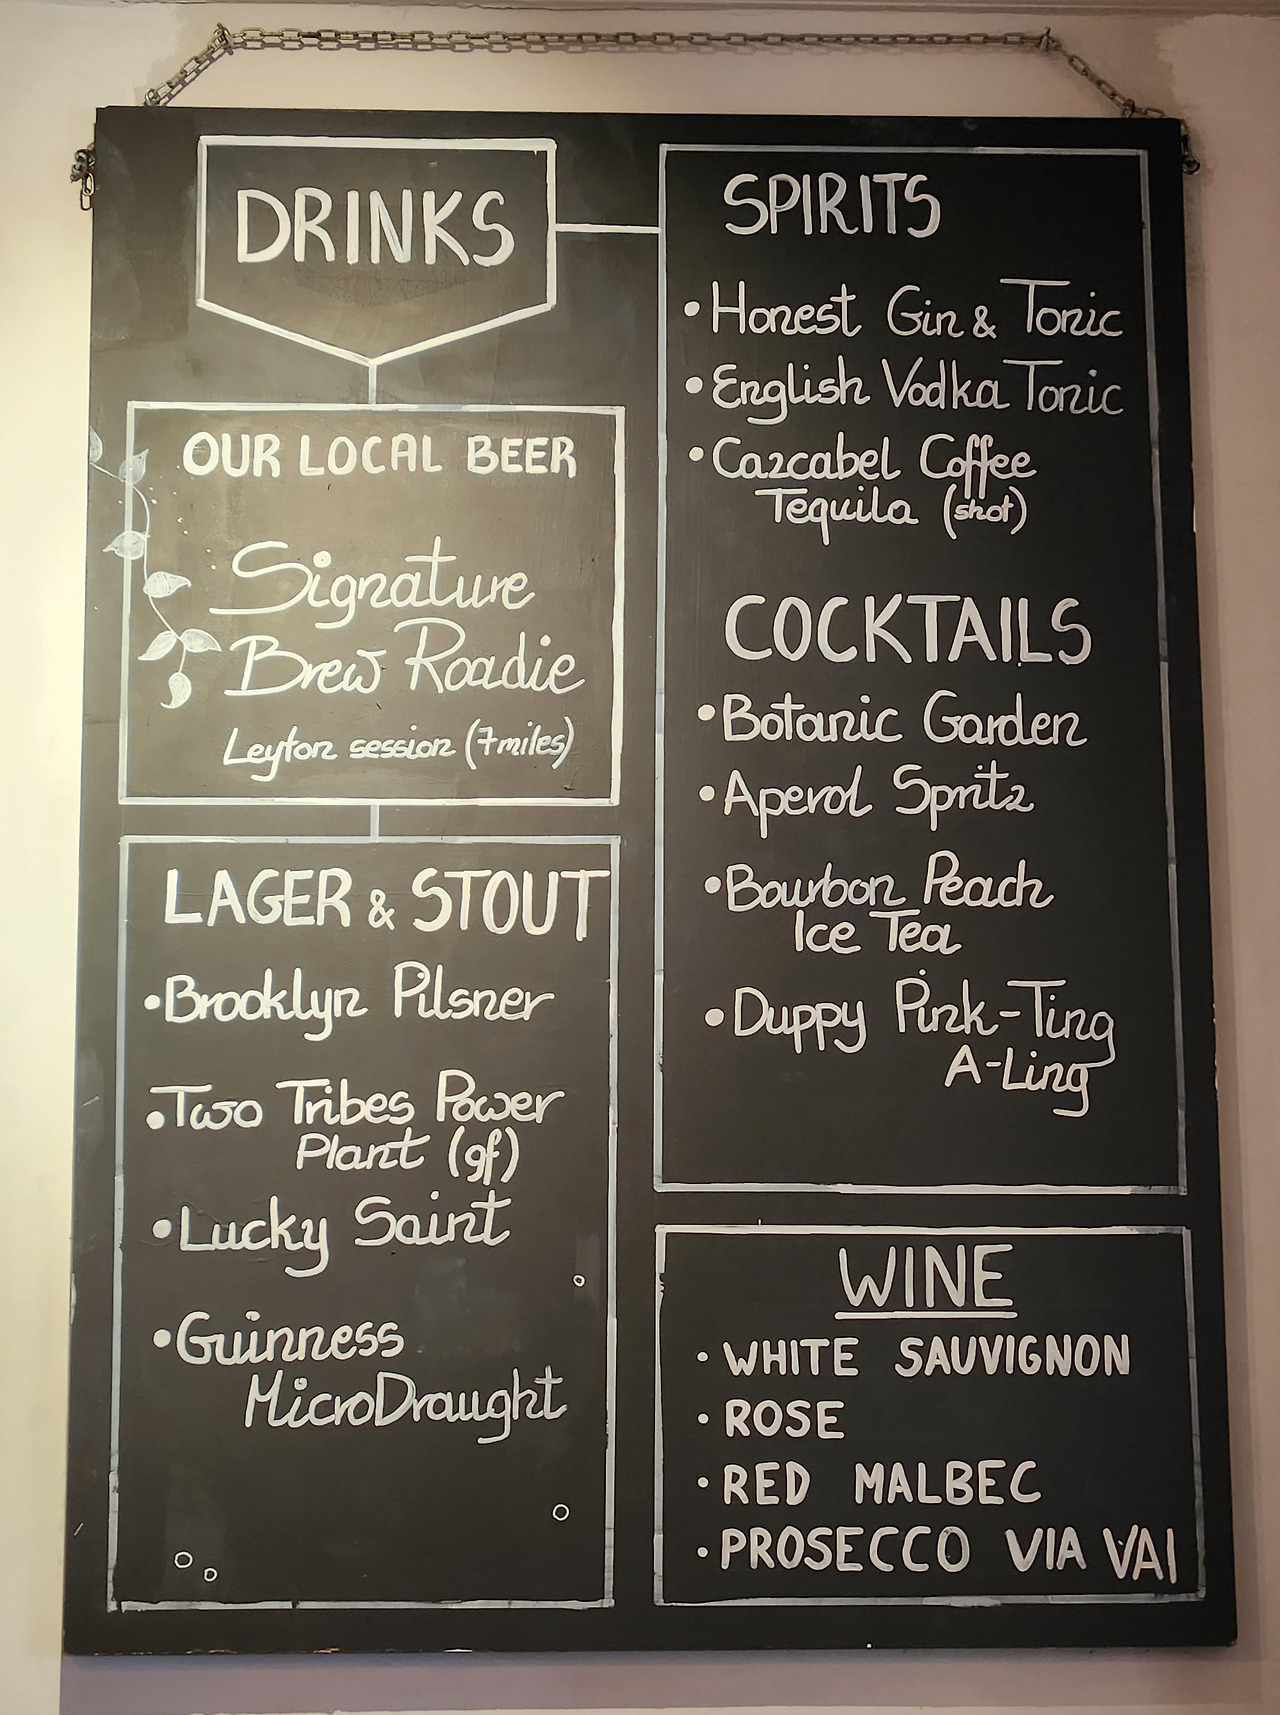 DRINKS
OUR LOCAL BEER
Signature
Brew Roadie
Leyton session (7miles)
LAGER & STOUT
•Brooklyn Pilsner
•Two Tribes Power
Plant (gf)
•Lucky Saint
•Guinness
MicroDraught
SPIRITS
•Honest Gin & Tonic
•English Vodka Tonic
•Cazcabel Coffee
Tequila (shot)
COCKTAILS
•Botanic Garden
•Aperol Spritz
•Bourbon Peach
Ice Tea
•Duppy Pink-Ting
A-Ling
WINE
•WHITE SAUVIGNON
•ROSE
•RED MALBEC
•PROSECCO VIA VAI